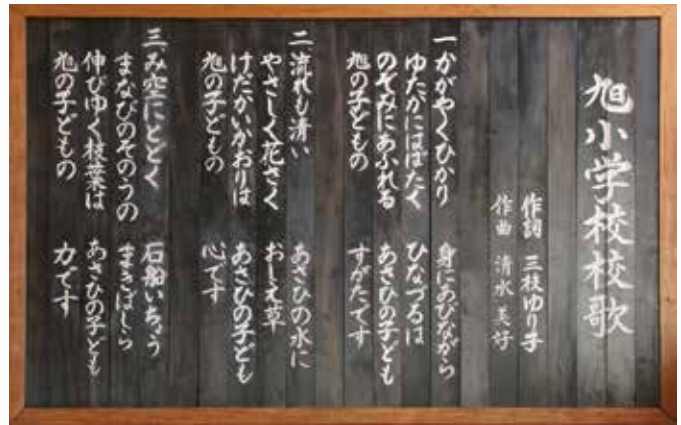 旭小学校校歌
作詞 三枝ゆり子
作曲 清水美好
一 かがやくひかり 身にあびながら
ゆたかにはばたく ひなづるは
のぞみにあふれる あさひの子ども
旭の子どもの すがたです
二 流れも清い あさひの水に
やさしく花さく おしえ草
けだかいかおりは あさひの子ども
旭の子どもの 心です
三 み空にとどく 石船いちょう
まなびのそのうの まきばしら
伸びゆく枝葉は あさひの子ども
旭の子どもの 力です